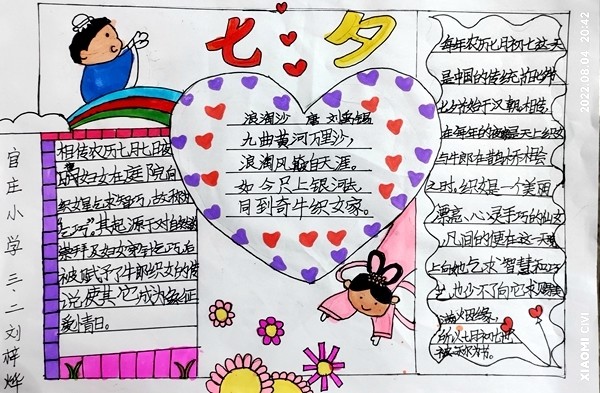 七夕
浪淘沙 唐 刘禹锡
九曲黄河万里沙,
浪淘风簸自天涯。
如今只上银河去,
同到牵牛织女家。
相传农历七月七日夜
妇女在庭院向
织女星乞求智巧,故称为
“乞巧”。其起源于对自然的
崇拜及妇女穿针乞巧,后
被赋予了牛郎织女的传
说使其它成为象征
爱情日。
每年农历七月初七这一天
是中国的传统节日七夕节
七夕始于汉朝,相传,
在每年的这个夜晚是天上织女
与牛郎在鹊桥相会
之时,织女是一个美丽
漂亮、心灵手巧的仙女
凡间的便在这一天晚
上向她乞求智慧和巧
艺,也少不了向它求赐美
满姻缘,
所以七月初七也
被称为
官庄小学三·二刘梓烨
2022.08.04 20:42
XIAOMI CIVI